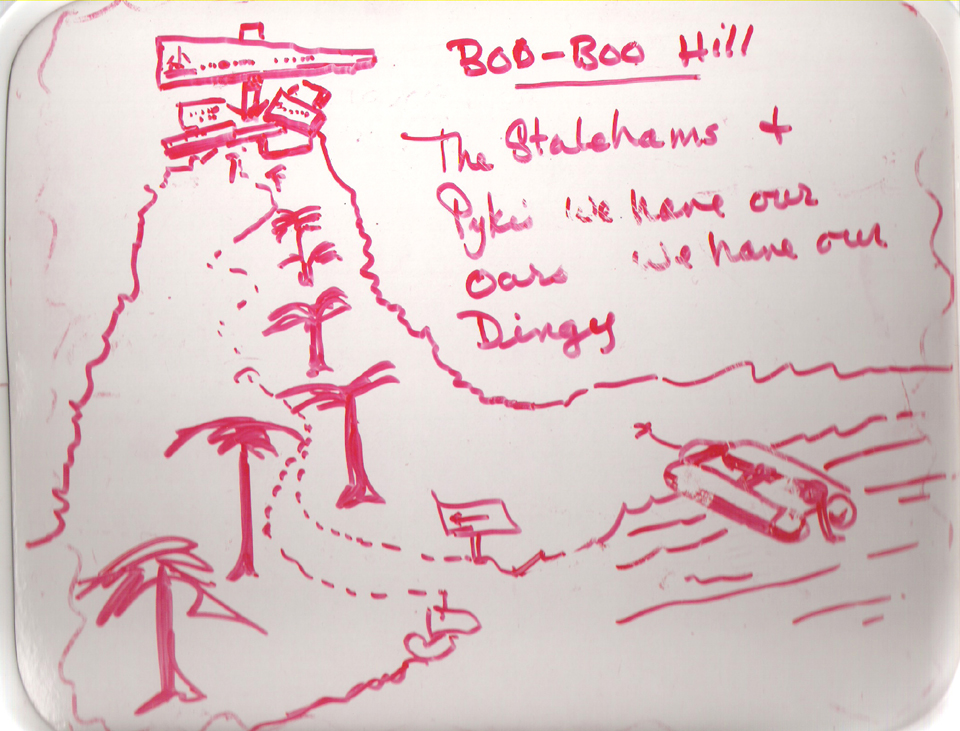 BOO-BOO Hill
The Stalehams +
Pykes we have our
oars we have our
Dingy